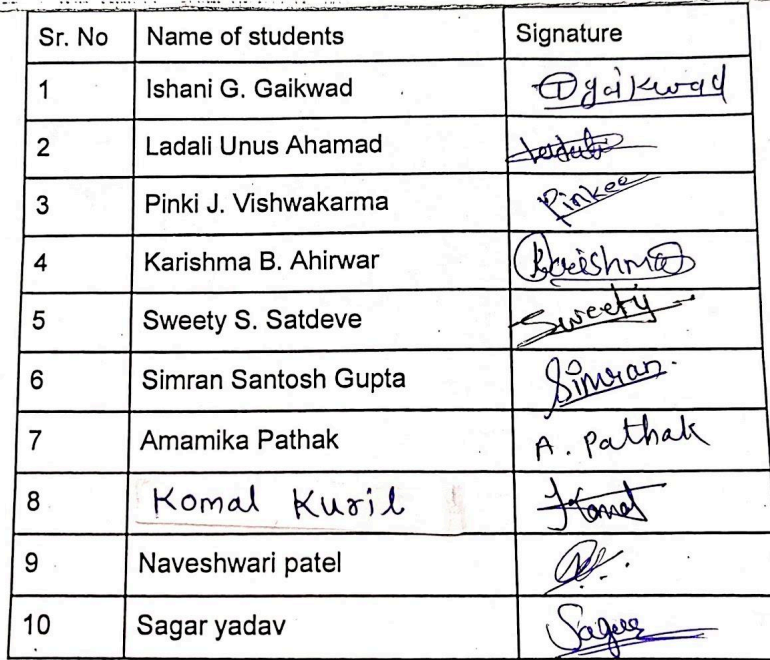 Sr. No Name of students Signature
1 Ishani G. Gaikwad Igaikwad
2 Ladali Unus Ahamad
3 Pinki J. Vishwakarma Pinkee
4 Karishma B. Ahirwar Karishma
5 Sweety S. Satdeve Sweety
6 Simran Santosh Gupta Simran.
7 Amamika Pathak A. Pathak
8 Komal Kuril Komal
9 Naveshwari patel
10 Sagar yadav Sagar